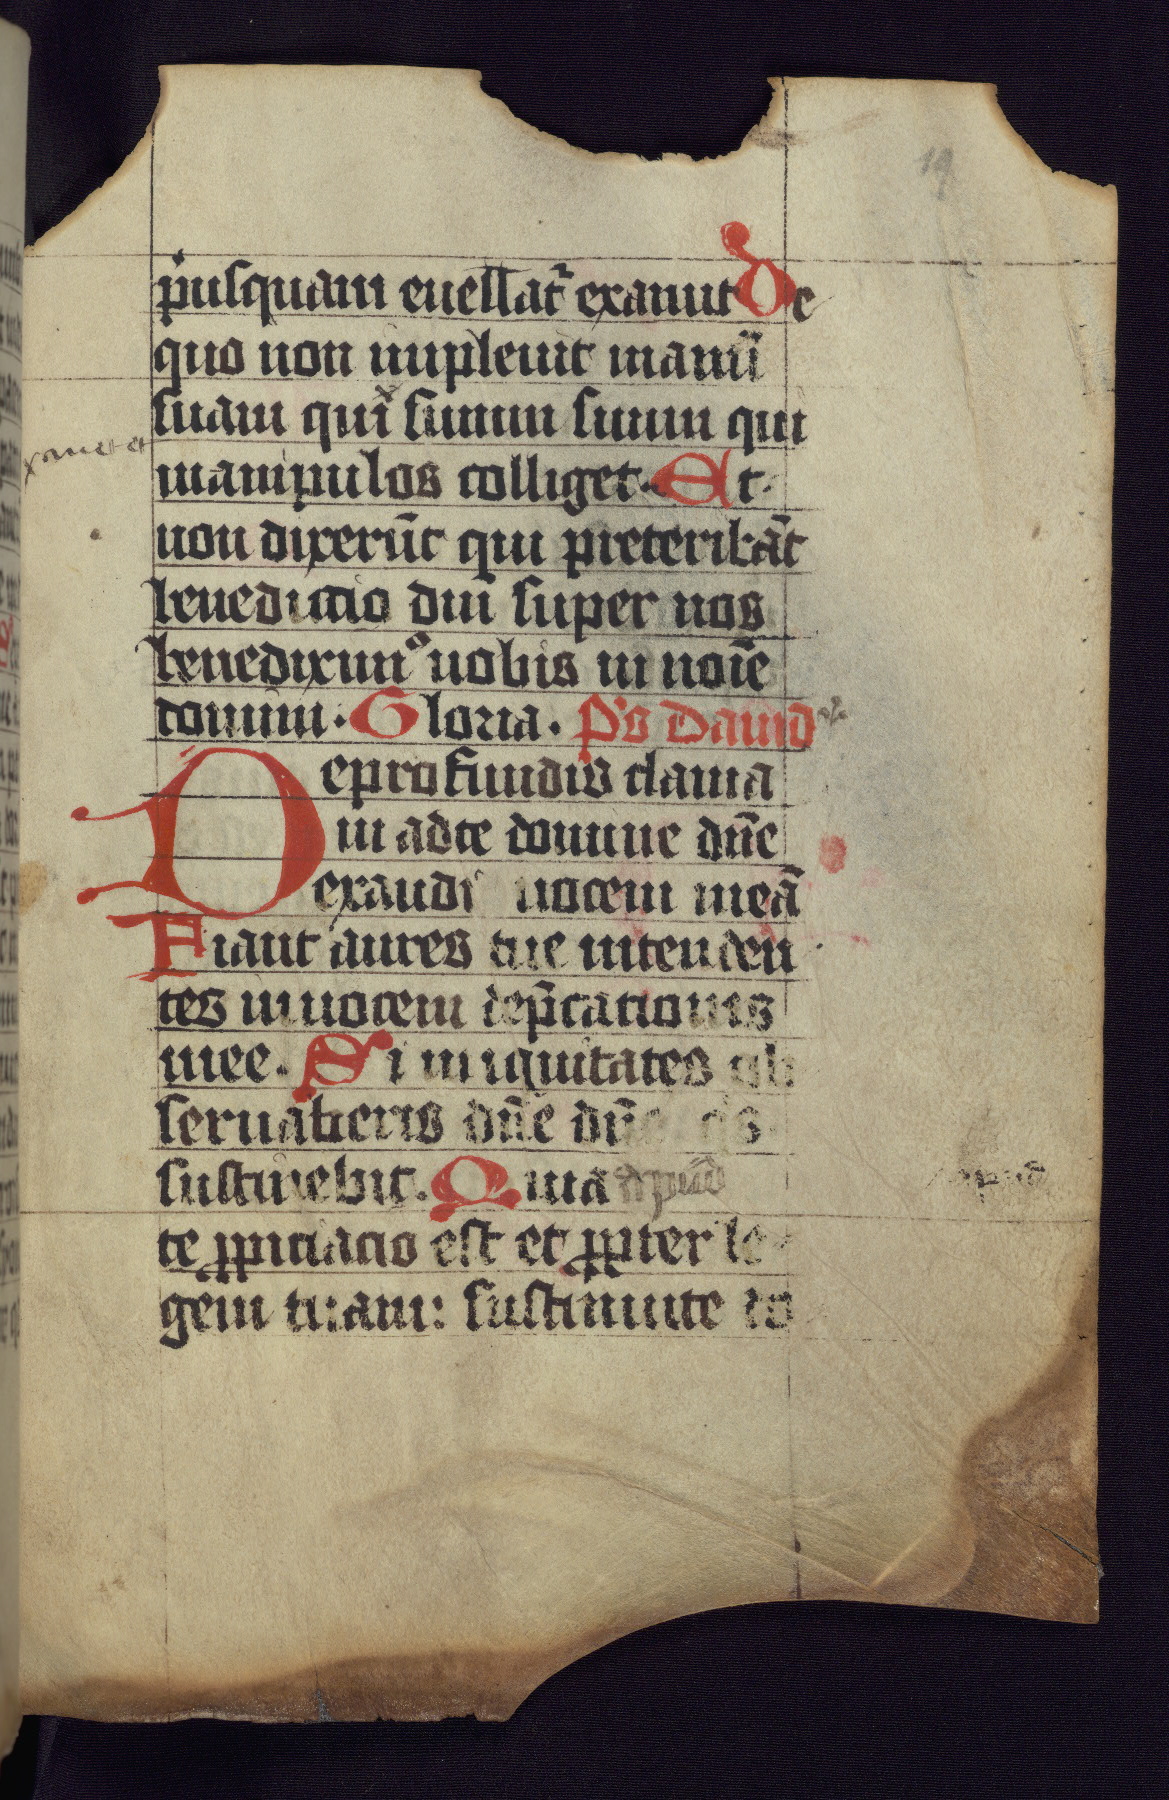 19
p̍usquam euellat᷑ exaruit De
quo non impleuit manū
suam qui sinum suum qui
manipulos colliget. Et
non dixerūt qui preteribāt
benedictio dn̄i super uos
benediximꝰ uobis in noīe
domini. Gloria. P's Dauid
De profundis clama
ui ad te domine dn̄e
exaudi uocem meā
Fiant aures tue intenden
tes in uocem dep̄cationis
mee. Si iniquitates ob
seruaberis dn̄e dn̄e
sustinebit. Quia apud apud
te ꝓpiciacio est et ꝓpter le
gem tuam: sustinui te